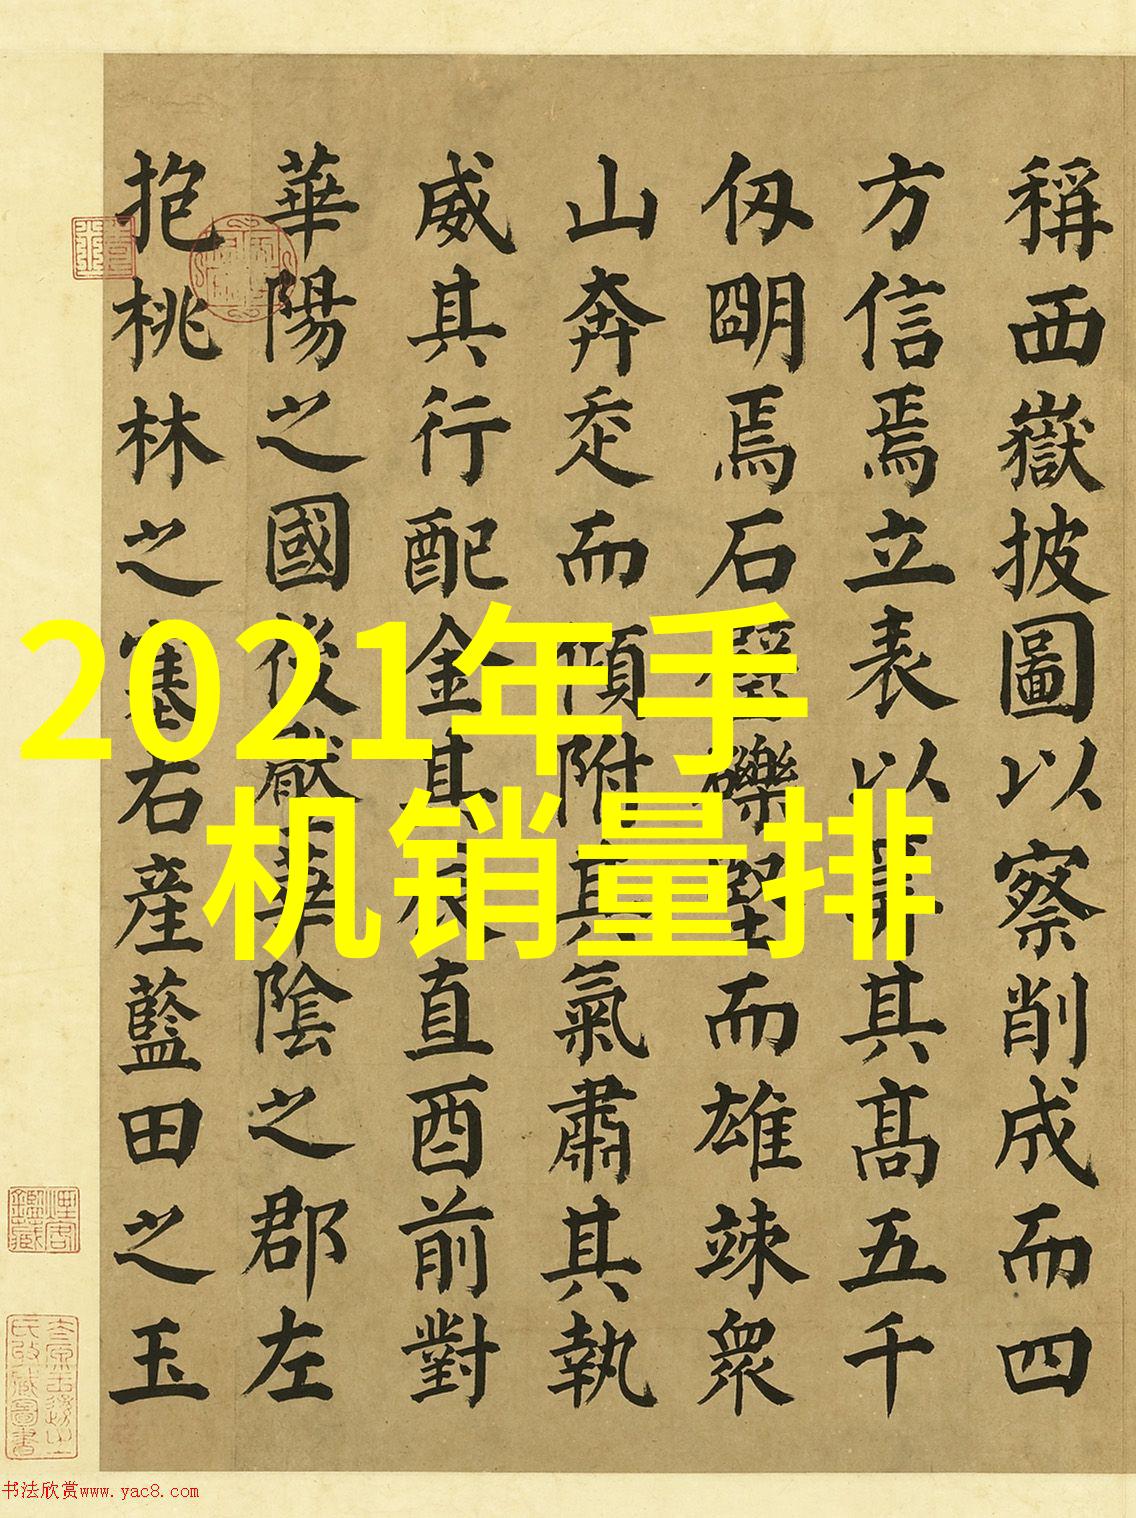 2021年手
机销量排
稱西嶽披圖以察削成而四
方信焉立表以筭其髙五千
仭朙焉石礫堅而雄竦衆
山奔走而傾附其氣肅其執
威其行配金其辰直酉前對
華陽之國後壓華陰之郡左
抱桃林之塞右産藍田之玉
书法欣赏www.yac8.com